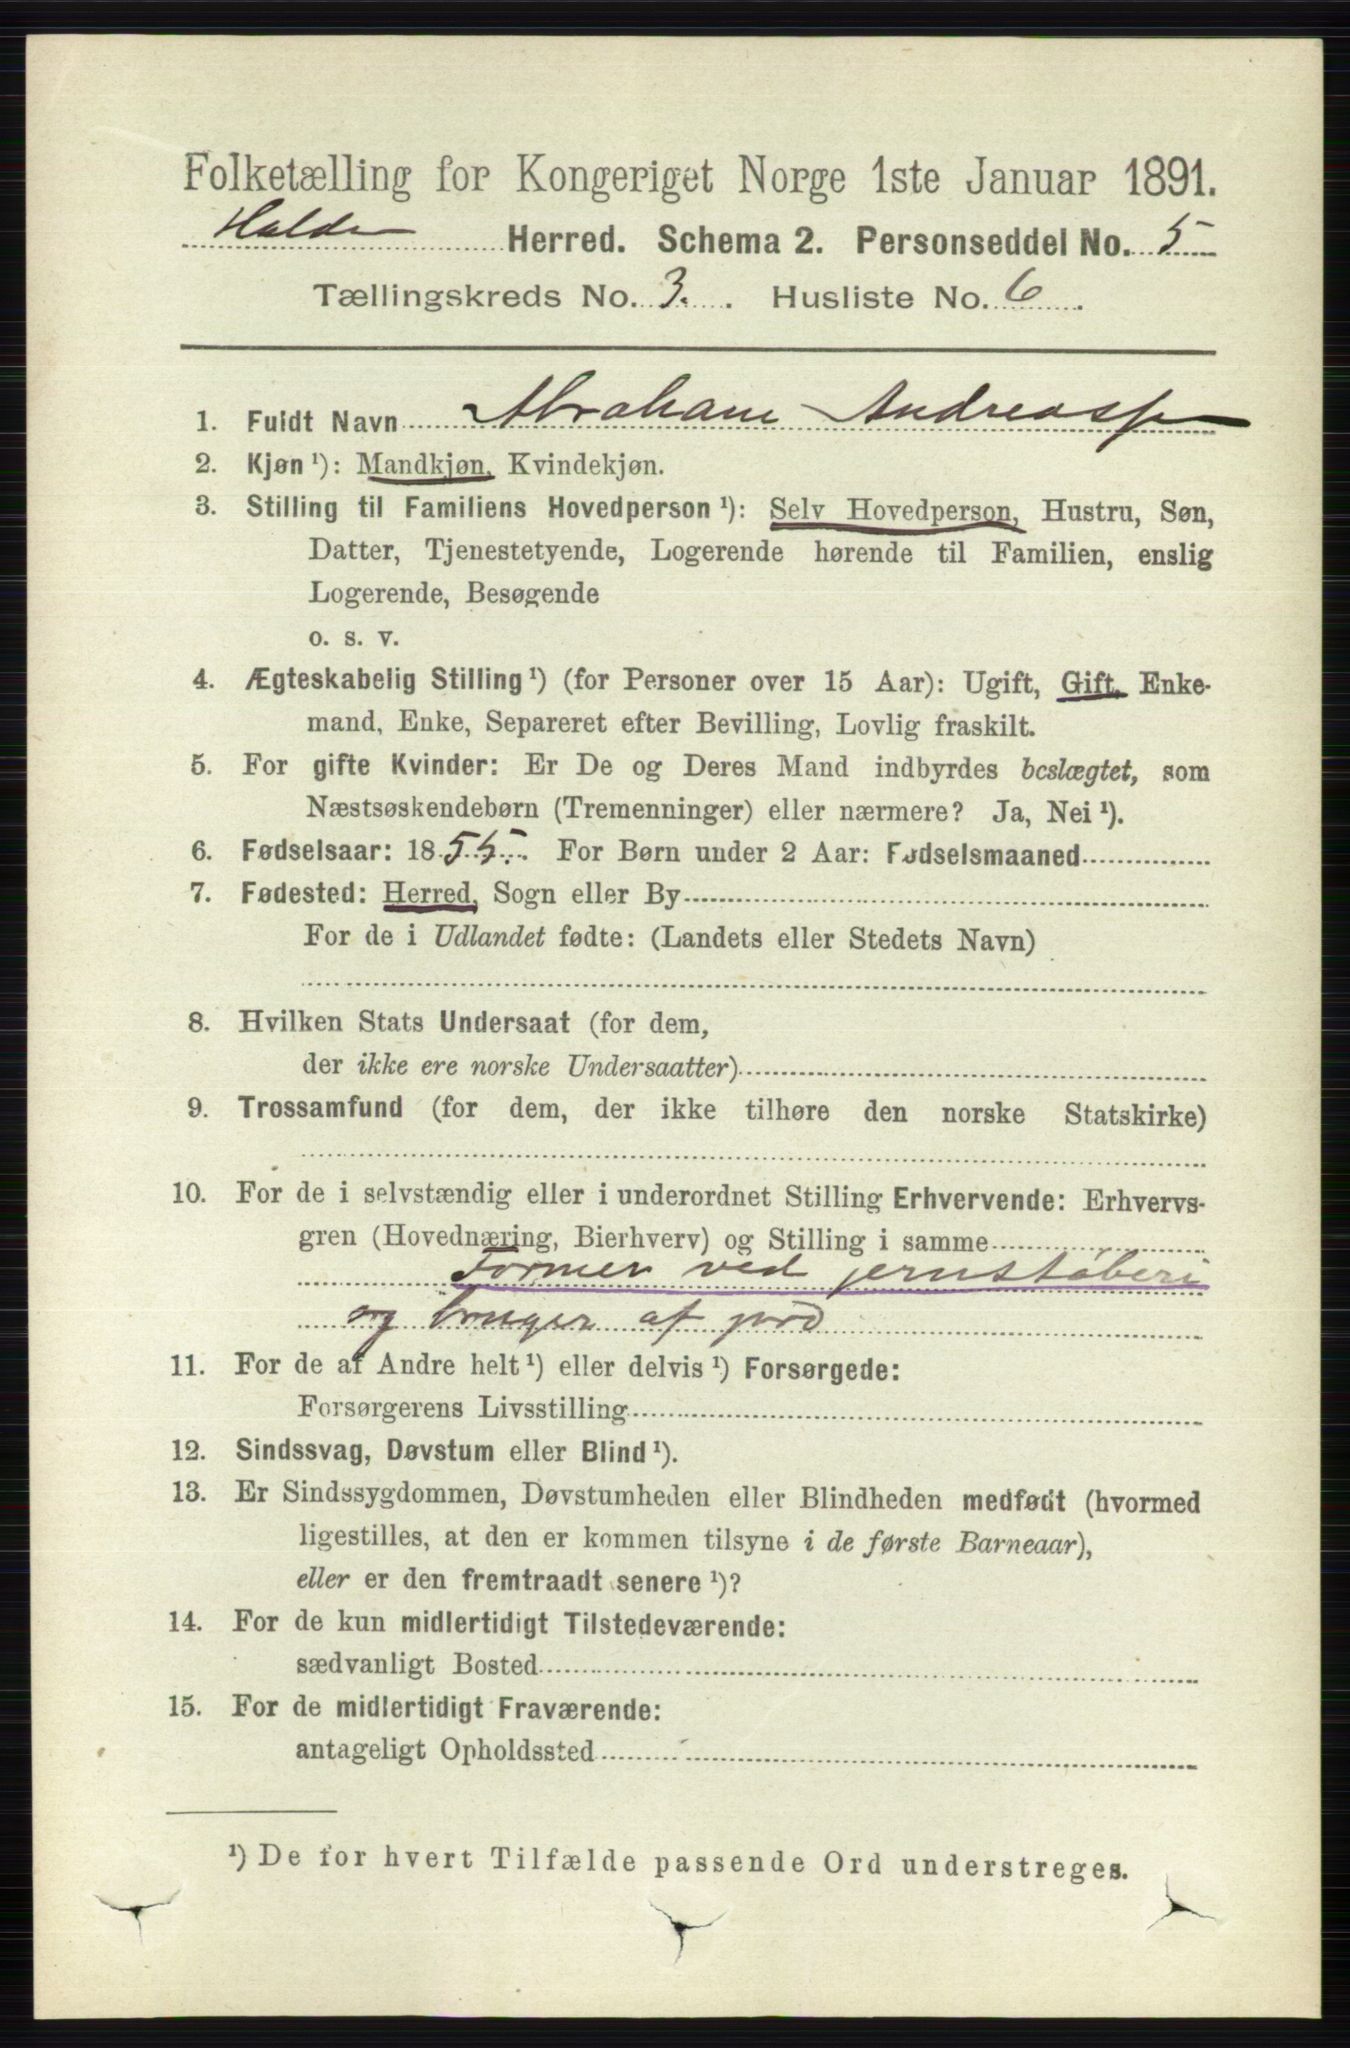 Folketælling for Kongeriget Norge 1ste Januar 1891.
Herred. Schema 2. Personseddel No. 5
Tællingskreds No. 3. Husliste No. 6.
1. Fuldt Navn Abraham Andreass
2. Kjøn ¹): Mandkjøn, Kvindekjøn.
3. Stilling til Familiens Hovedperson ¹): Selv Hovedperson, Hustru, Søn,
Datter, Tjenestetyende, Logerende hørende til Familien, enslig
Logerende, Besøgende
o. s. v.
4. Ægteskabelig Stilling ¹) (for Personer over 15 Aar): Ugift, Gift, Enke-
mand, Enke, Separeret efter Bevilling, Lovlig fraskilt.
5. For gifte Kvinder: Er De og Deres Mand indbyrdes beslægtet, som
Næstsøskendebørn (Tremenninger) eller nærmere? Ja, Nei ¹).
6. Fødselsaar: 1855. For Børn under 2 Aar: Fødselsmaaned
7. Fødested: Herred, Sogn eller By
For de i Udlandet fødte: (Landets eller Stedets Navn)
8. Hvilken Stats Undersaat (for dem,
der ikke ere norske Undersaatter)
9. Trossamfund (for dem, der ikke tilhøre den norske Statskirke)
10. For de i selvstændig eller i underordnet Stilling Erhvervende: Erhvervs-
gren (Hovednæring, Bierhverv) og Stilling i samme
Former ved jernstøberi
og bruger af jord
11. For de af Andre helt ¹) eller delvis ¹) Forsørgede:
Forsørgerens Livsstilling
12. Sindssvag, Døvstum eller Blind ¹).
13. Er Sindssygdommen, Døvstumheden eller Blindheden medfødt (hvormed
ligestilles, at den er kommen tilsyne i de første Barneaar),
eller er den fremtraadt senere ¹)?
14. For de kun midlertidigt Tilstedeværende:
sædvanligt Bosted
15. For de midlertidigt Fraværende:
antageligt Opholdssted
¹) De for hvert Tilfælde passende Ord understreges.